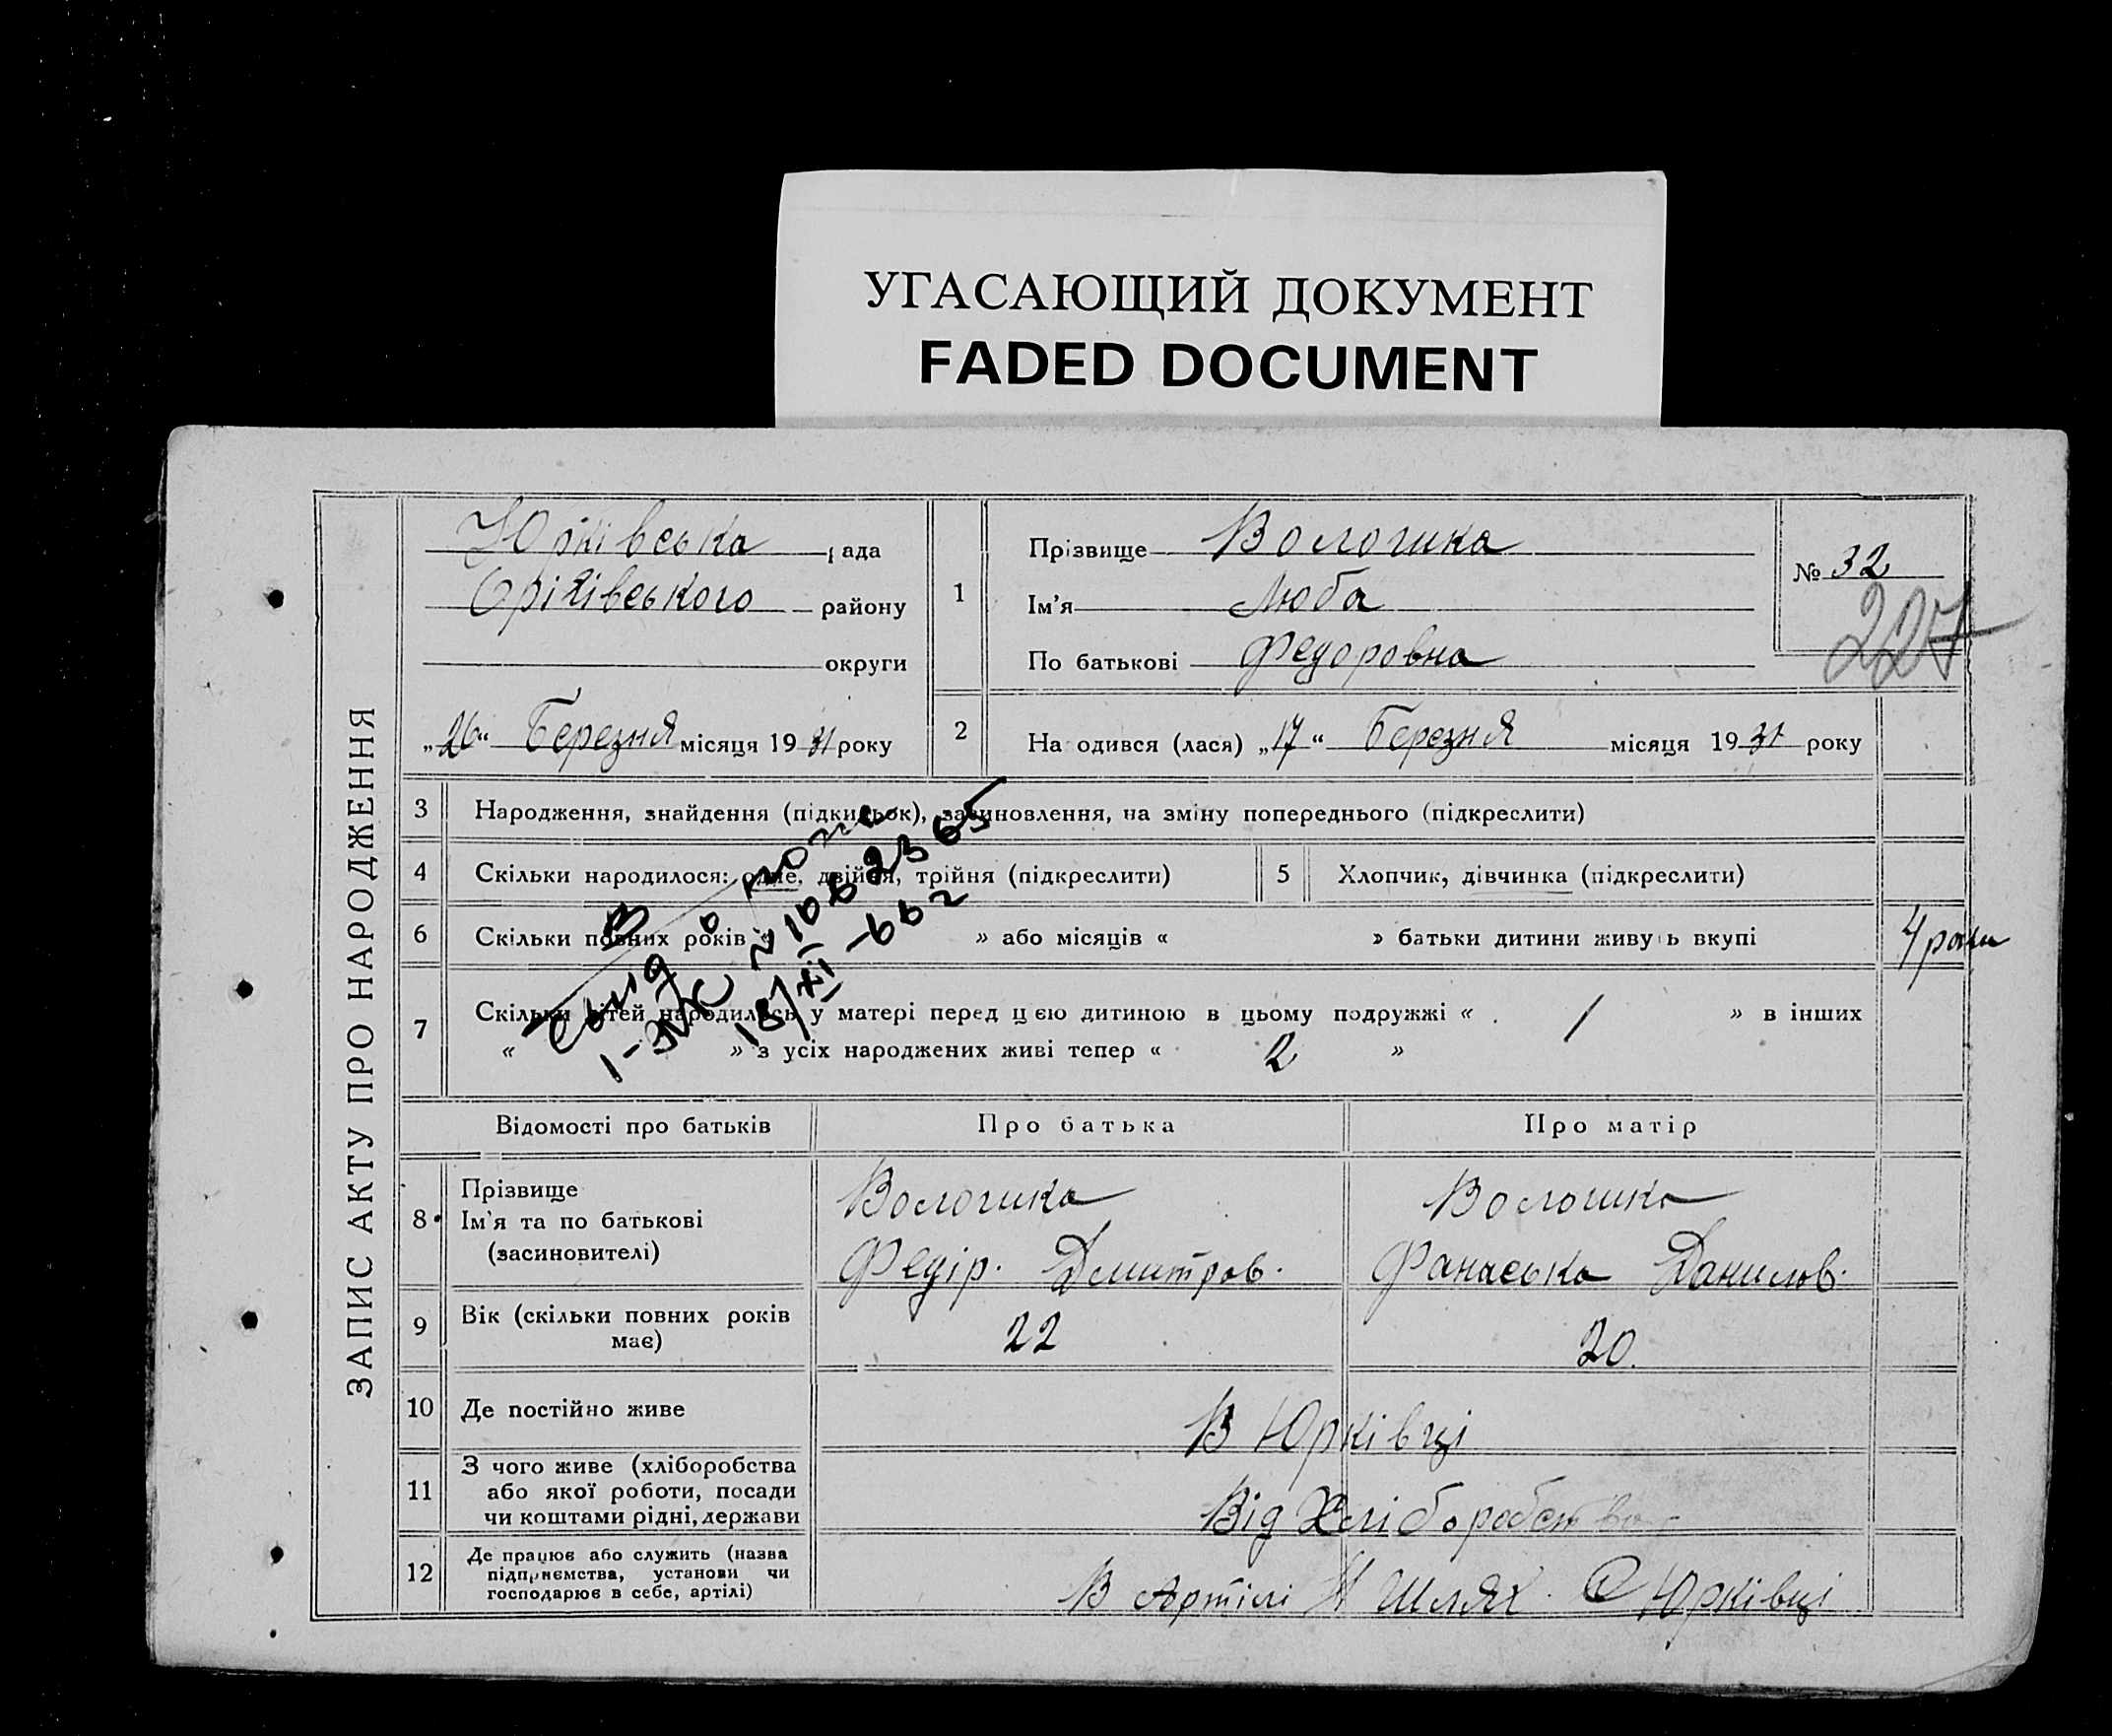 УГАСАЮЩИЙ ДОКУМЕНТ
FADED DOCUMENT
ЗАПИС АКТУ ПРО НАРОДЖЕННЯ
Юрківська рада
Оріхівського району
округи
„26“ Березня місяця 1931 року
1 Прізвище Вологика
Ім'я Люба
По батькові Федоровна
№ 32
227
2 На одився (лася) „17“ Березня місяця 1931 року
3 Народження, знайдення (підкидьок), засиновлення, на зміну попереднього (підкреслити)
4 Скільки народилося: одне, двійня, трійня (підкреслити)
5 Хлопчик, дівчинка (підкреслити)
6 Скільки повних років « » або місяців « » батьки дитини живуть вкупі
4 роки
7 Скільки дітей народилось у матері перед цією дитиною в цьому подружжі « 1 » в інших
« » з усіх народжених живі тепер « 2 »
1-ЖС № 1062365
18/XII-66 г
Відомості про батьків Про батька Про матір
8 Прізвище
Ім'я та по батькові
(засиновителі)
Вологика
Федір. Дмитров.
Вологика
Фанаська Данилов.
9 Вік (скільки повних років
має)
22
20.
10 Де постійно живе
В Юрківці
11 З чого живе (хліборобства
або якої роботи, посади
чи коштами рідні, держави
Від Хліборобства
12 Де працює або служить (назва
підприємства, установи чи
господарює в себе, артілі)
В Артілі Н Шлях. С Юрківці